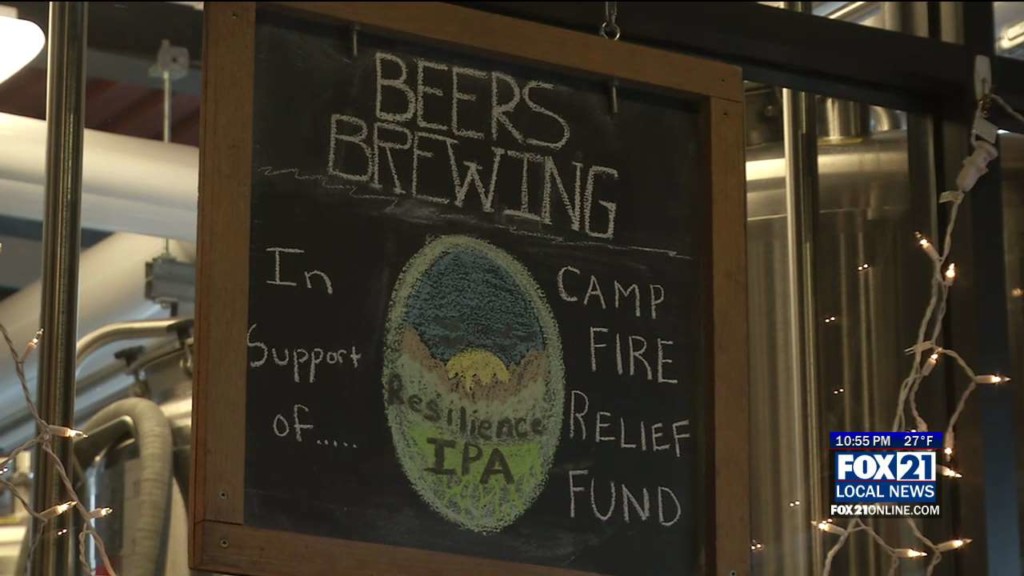 BEERS
BREWING
In
Support
of.....
Resilience
IPA
CAMP
FIRE
RELIEF
FUND
10:55 PM 27°F
FOX 21
LOCAL NEWS
FOX21ONLINE.COM